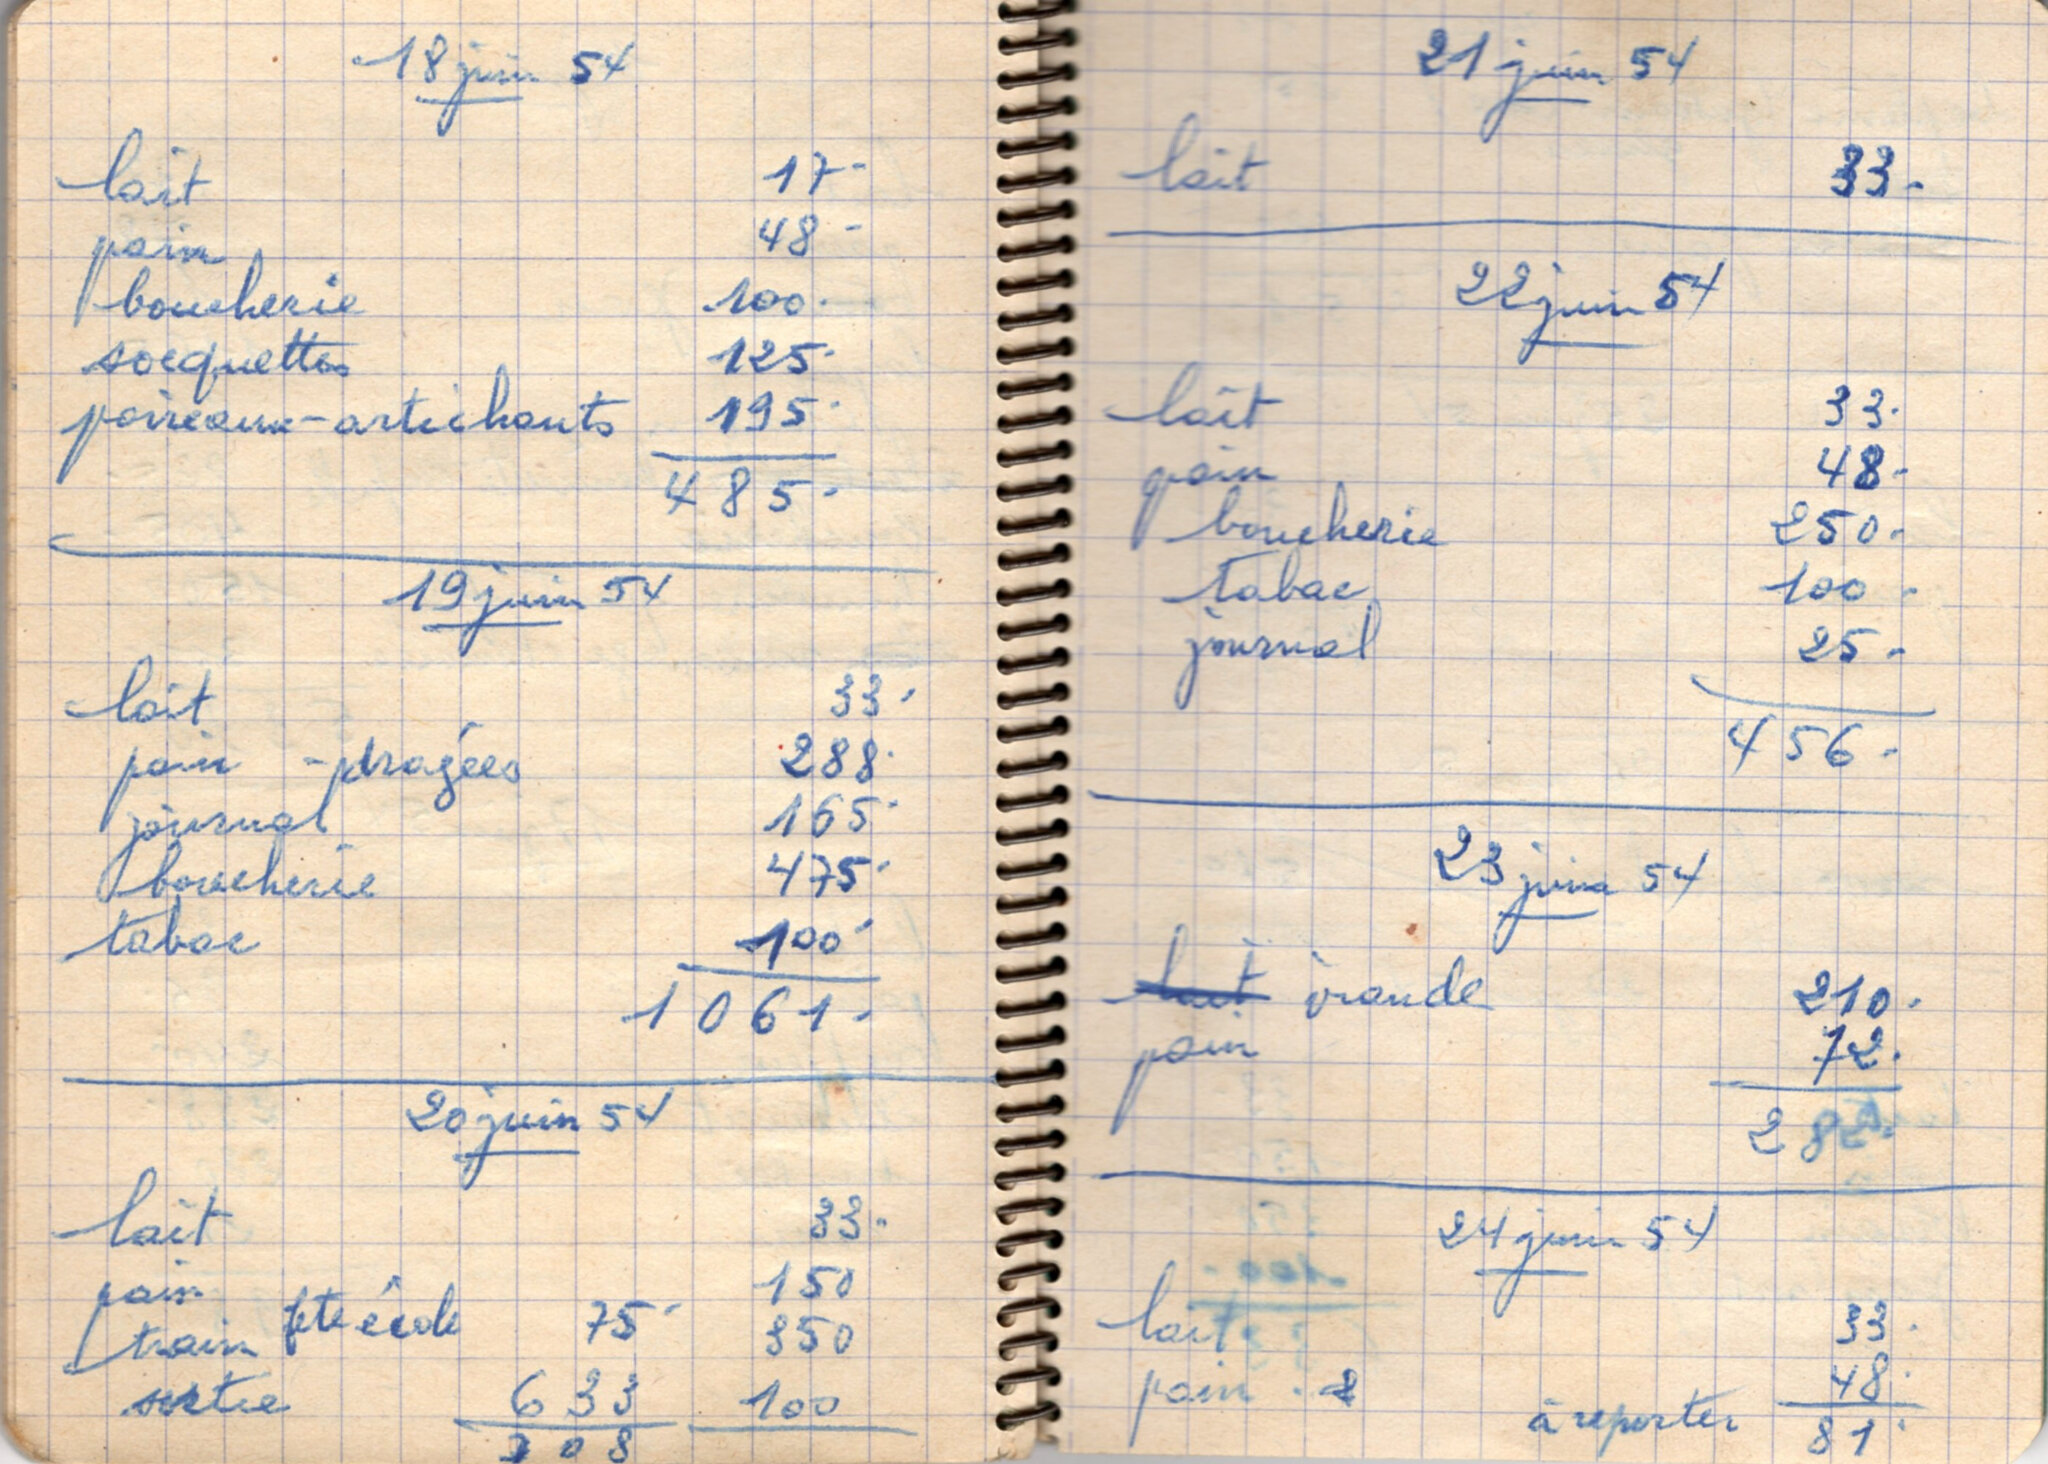 18 juin 54
lait 17-
pain 48-
boucherie 100.
socquettes 125.
poireaux-artichauts 195.
485.
19 juin 54
lait 33.
pain - dragées 288.
journal 165.
boucherie 475.
tabac 100.
1061.
20 juin 54
lait 33.
pain 150
train fête école 75. 350
sortie 633 100
708
21 juin 54
lait 33.
22 juin 54
lait 33.
pain 48-
boucherie 250.
tabac 100.
journal 25-
456-
23 juin 54
viande 210.
pain 72.
282.
24 juin 54
lait 33.
pain 48.
à reporter 81.